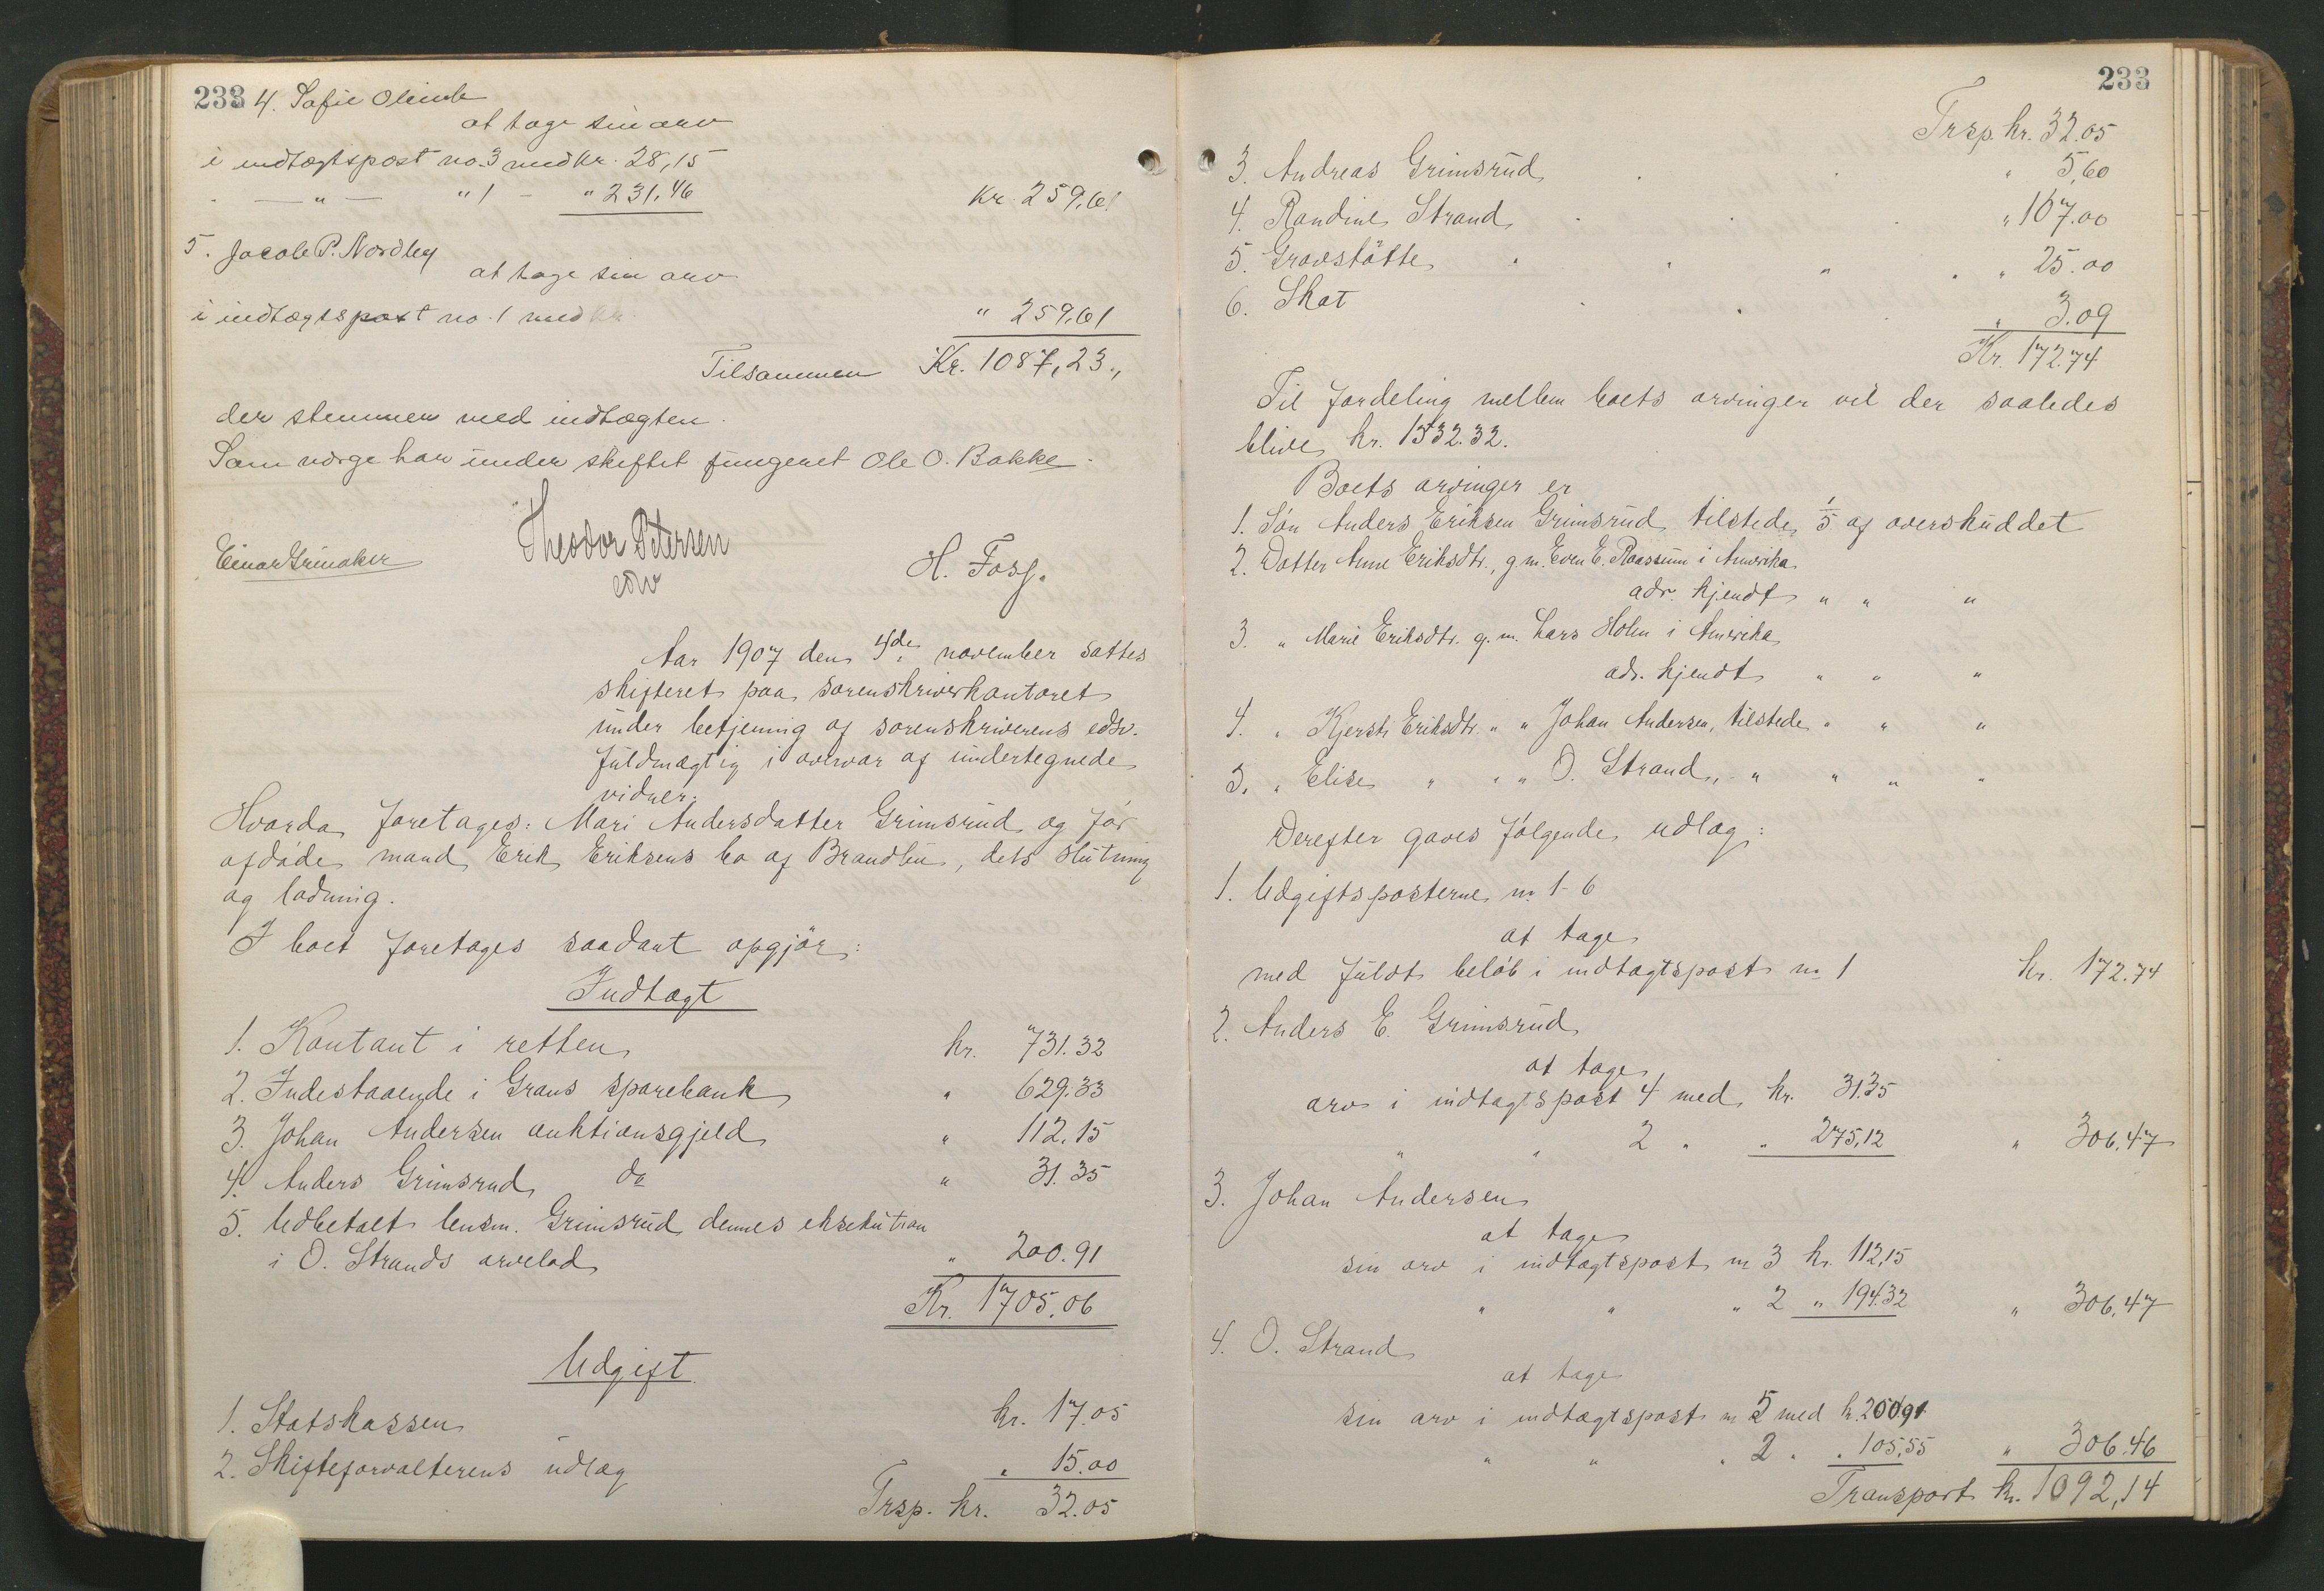 233 4. Sofie Olsen
at tage sin arv
i indtægtspost no. 3 med kr. 28,15
" — " — " 1 - " 231,46 Kr. 259,61
5. Jacob P. Nordby
at tage sin arv
i indtægtspost no. 1 med kr. " 259,61
Tilsammen Kr. 1087,23.,
der stemmer med indtægten.
Som værge har under skiftet fungeret Ole O. Bakke.
Einar Grinaker Theodor Petersen H. Foss.
edsv
Aar 1907 den 4de november sattes
skifteret paa sorenskriverkontoret
under betjening af sorenskriverens edsv.
fuldmægtig i overvær af undertegnede
vidner.
Hvorda foretages: Mari Andersdatter Grimsrud og før
afdøde mand Erik Eriksens bo af Brandbu, dets slutning
og lodning.
I boet foretages saadant opgjør:
Indtægt
1. Kontant i retten kr. 731.32
2. Indestaaende i Grans sparebank " 629.33
3. Johan Andersen auktionsgjeld " 112.15
4. Anders Grimsrud do " 31.35
5. Udbetalt lensm. Grimsrud dennes eksekution
i O. Strands arvelod " 200.91
Kr. 1705.06
Udgift
1. Statskassen kr. 17.05
2. Skifteforvalterens udlæg " 15.00
Trsp. kr. 32.05
233
Trsp. kr. 32.05
3. Andreas Grimsrud " 5,60
4. Randine Strand " 107.00
5. Gravstøtte " 25.00
6. Skat " 3.09
Kr. 172.74
Til fordeling mellem boets arvinger vil der saaledes
blive kr. 1532.32.
Boets arvinger er
1. Søn Anders Eriksen Grimsrud tilstede, 1/5 af overskuddet
2. Datter Anne Eriksdtr., g. m. Even E. Raassum i Amerika
adr. kjendt " " "
3 " Marie Eriksdtr. g. m. Lars Holm i Amerika
adr. kjendt " " "
4. " Kjersti Eriksdtr. " " Johan Andersen, tilstede " " "
5. " Elise " " " O. Strand, " " " "
Derefter gaves følgende udlæg:
1. Udgiftsposterne nr 1-6
at tage
med fuldt beløb i indtægtspost nr 1 kr. 172.74
2. Anders E. Grimsrud
at tage
arv i indtægtspost 4 med kr. 31.35
" " 2 " " 275,12 " 306,47
3. Johan Andersen
at tage
sin arv i indtægtspost nr 3 kr. 112,15
" " " 2 " 194.32 " 306,47
4. O. Strand
at tage
sin arv i indtægtspost nr 5 med kr. 200.91
" " " 2 " " 105.55 " 306.46
Transport kr. 1092,14